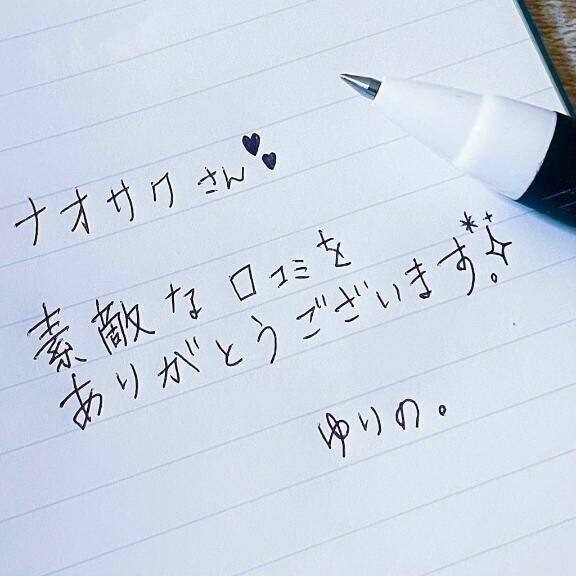 ナオサクさん
素敵な口コミを
ありがとうございます
ゆりの。